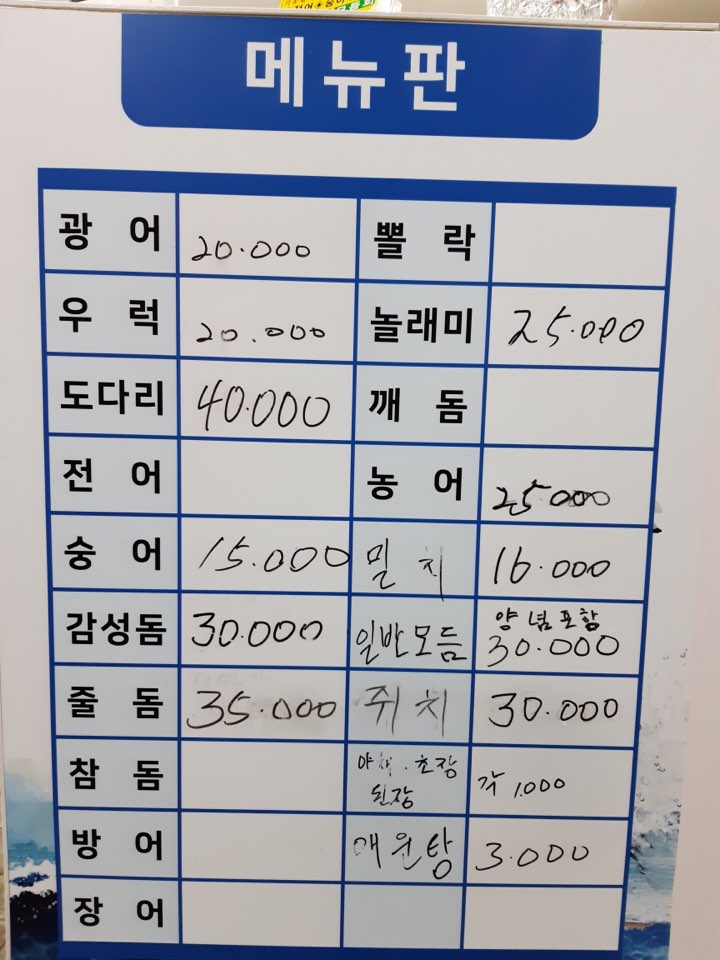 메뉴판
광어 20.000 뽈락
우럭 20.000 놀래미 25.000
도다리 40.000 깨돔
전어 농어 25.000
숭어 15.000 밀치 16.000
감성돔 30.000 일반모듬 양념포함 30.000
줄돔 35.000 쥐치 30.000
참돔 야채.초장 된장 각 1.000
방어 매운탕 3.000
장어